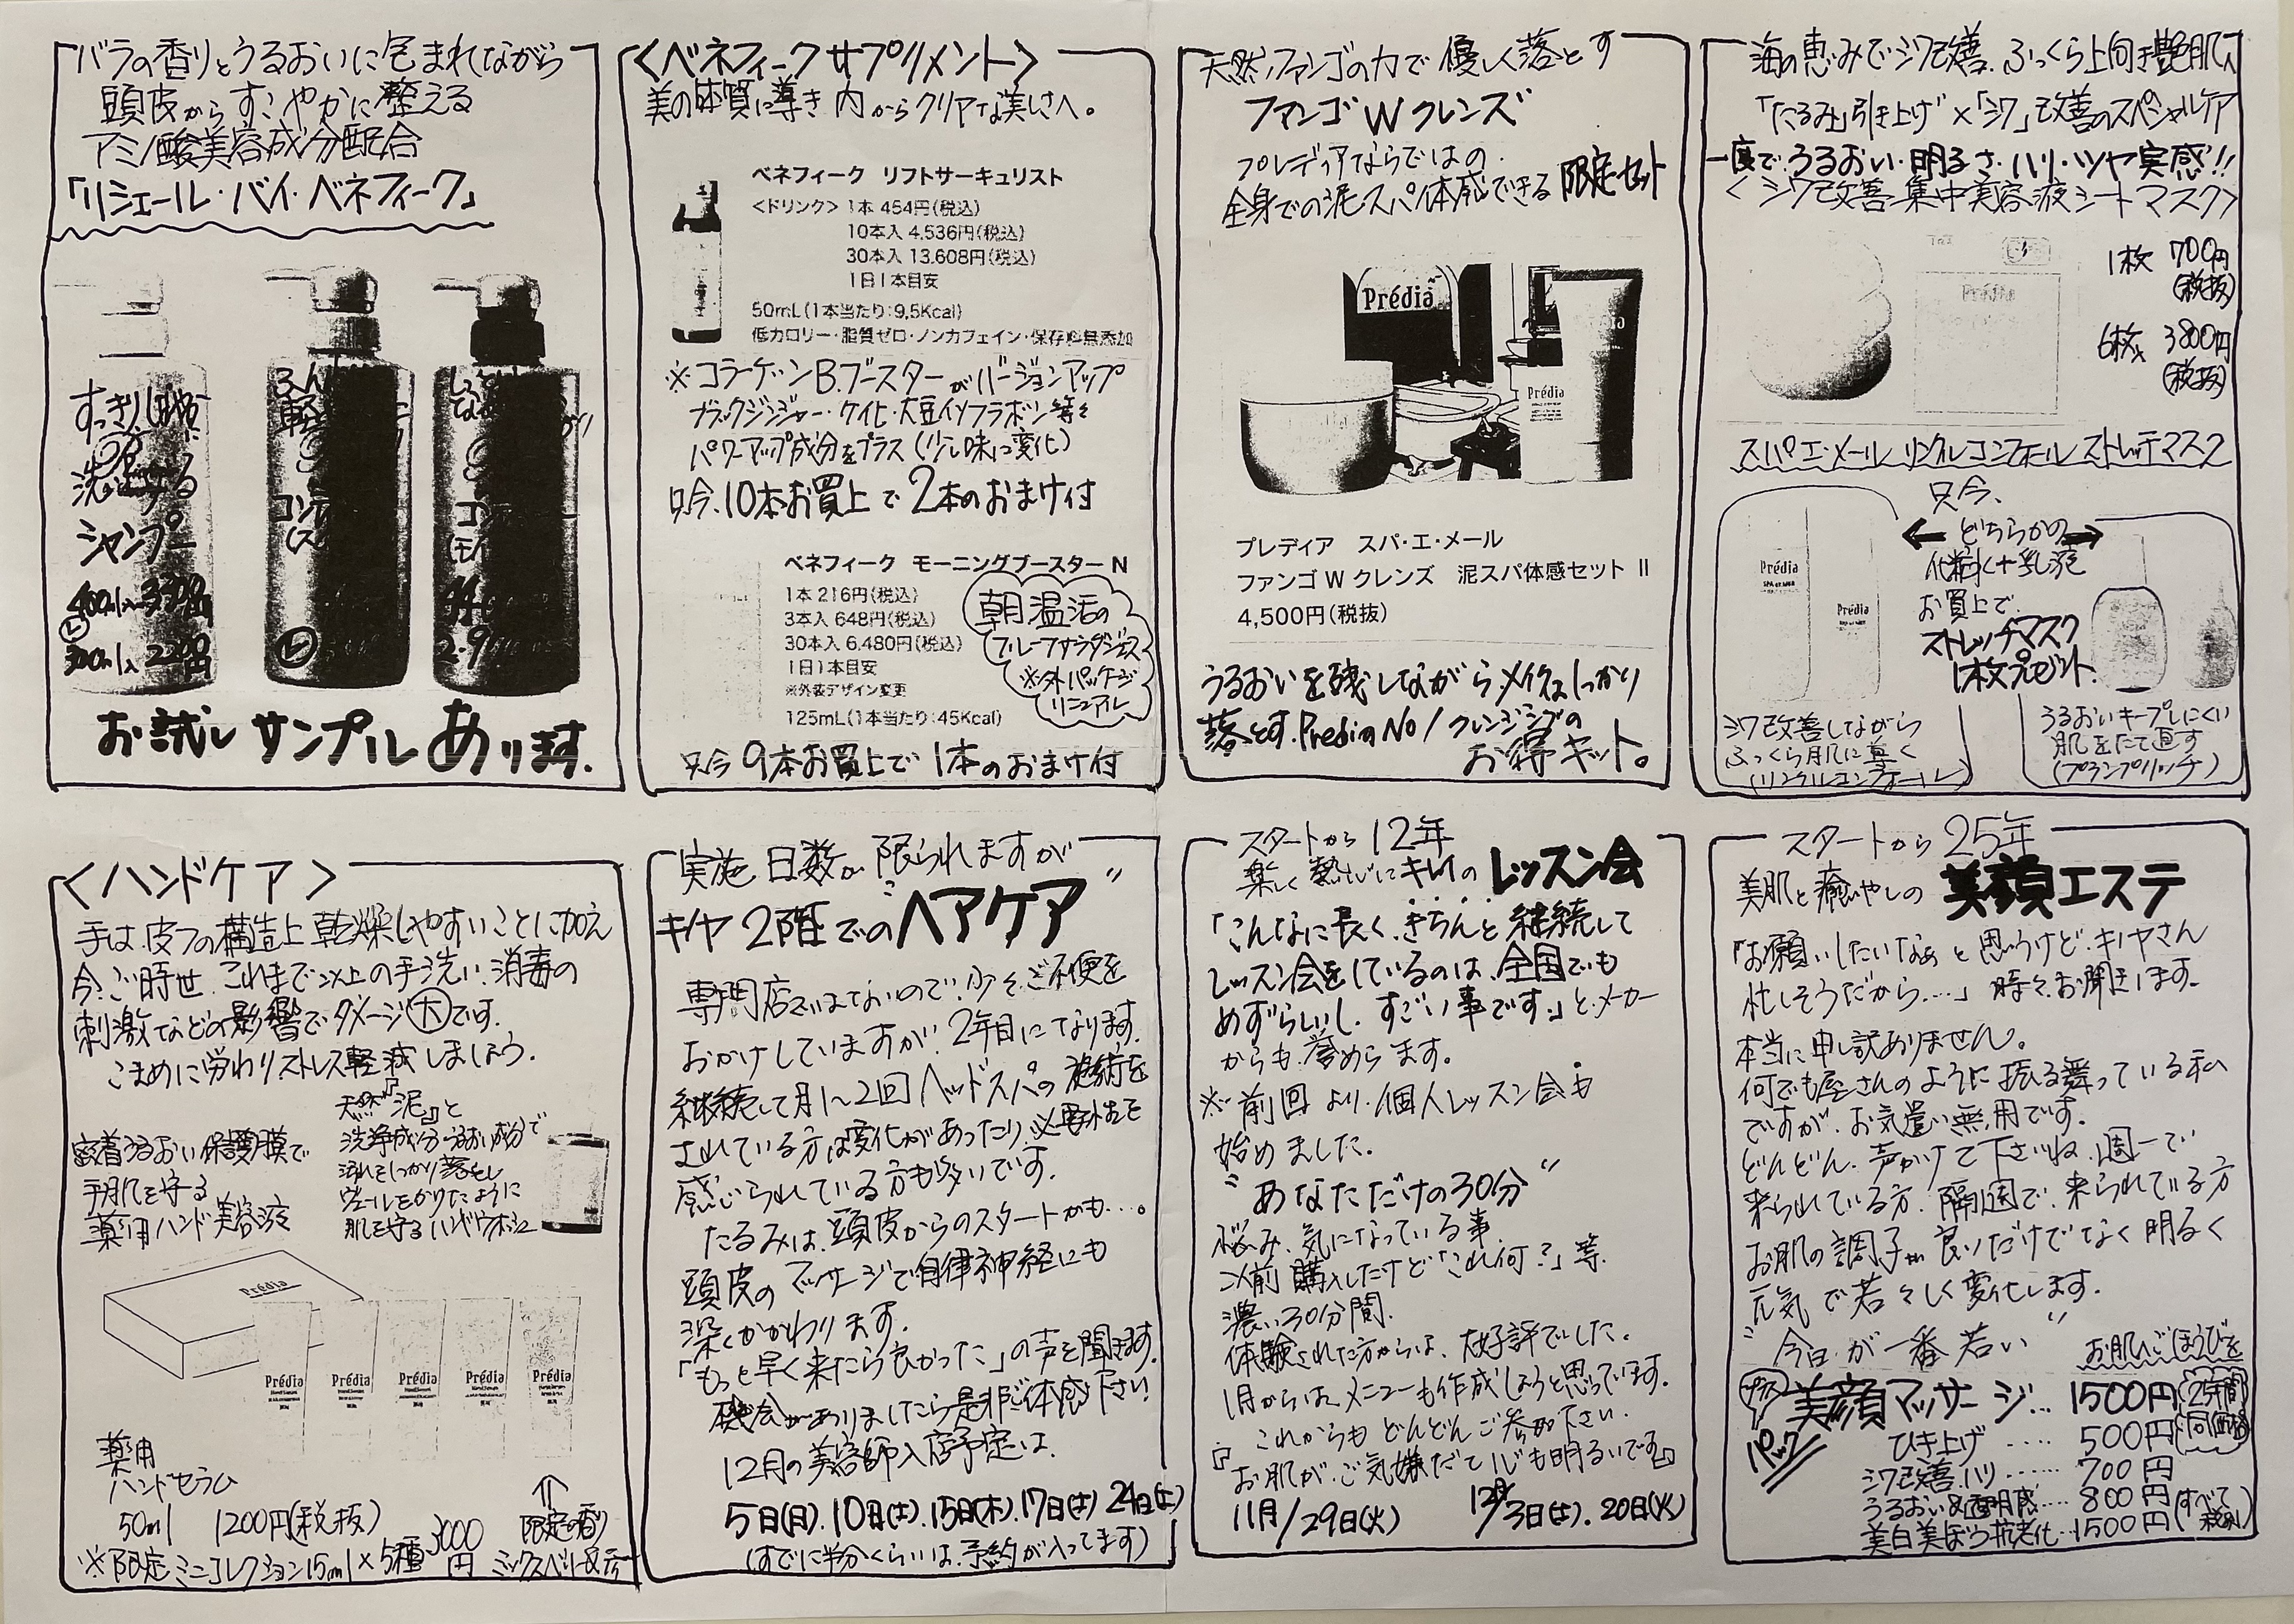 バラの香りとうるおいに包まれながら
頭皮からすこやかに整える
アミノ酸美容成分配合
「リシェール・バイ・ベネフィーク」
すっきり
洗い上げる
シャンプー
400ml入 3300円
300ml入 2200円
お試しサンプルあります。
<ベネフィークサプリメント>
美の体質に導き内からクリアな美しさへ。
ベネフィーク リフトサーキュリスト
<ドリンク> 1本 454円(税込)
10本入 4,536円(税込)
30本入 13,608円(税込)
1日1本目安
50mL(1本当たり:9.5Kcal)
低カロリー・脂質ゼロ・ノンカフェイン・保存料無添加
※コラーゲンB.ブースターがバージョンアップ
ブラックジンジャー・ケイヒ・大豆イソフラボン等々
パワーアップ成分をプラス(少し味に変化)
只今、10本お買上で2本のおまけ付
ベネフィーク モーニングブースター N
1本 216円(税込)
3本入 648円(税込)
30本入 6,480円(税込)
1日1本目安
※外装デザイン変更
125mL(1本当たり:45Kcal)
朝温活の
フルーツサラダジュース
※外パッケージ
リニューアル
只今 9本お買上で1本のおまけ付
天然ファンゴの力で優しく落とす
ファンゴWクレンズ
プレディアならではの
全身での泥スパ体感できる限定セット
Prédia
Prédia
プレディア スパ・エ・メール
ファンゴ W クレンズ 泥スパ体感セット II
4,500円(税抜)
うるおいを残しながらメイクはしっかり
落とす.Predia No1クレンジングの
お得キット。
海の恵みでシワ改善.ふっくら上向き艶肌へ
「たるみ」引き上げ×「シワ」改善のスペシャルケア
一度で、うるおい・明るさ・ハリ・ツヤ実感!!
<シワ改善 集中美容液シートマスク>
1枚 700円
(税抜)
6枚入 3800円
(税抜)
スパ・エ・メール リンクルコンフォール ストレッチマスク
只今、
← どちらかの →
化粧水+乳液
お買上で
ストレッチマスク
1枚プレゼント.
Prédia
Prédia
シワ改善しながら
ふっくら肌に導く
(リンクルコンフォール)
うるおいキープしにくい
肌をたて直す
(プランプリッチ)
<ハンドケア>
手は、皮フの構造上乾燥しやすいことに加え
今、ご時世、これまで以上の手洗い、消毒の
刺激などの影響でダメージ大です。
こまめに労わり、ストレス軽減しましょう。
密着うるおい保護膜で
手肌を守る
薬用ハンド美容液
天然『泥』と
洗浄成分・うるおい成分で
汚れをしっかり落とし
ヴェールをかけたように
肌を守るハンドウォッシュ
Prédia
Prédia
Prédia
Prédia
Prédia
Prédia
薬用
ハンドセラム
50ml 1200円(税抜)
限定の香り
※限定ミニコレクション15ml×5種 3000円
実施日数が限られますが
キノヤ2階での“ヘアケア”
専門店ではないので、少々ご不便を
おかけしていますが、2年目になります。
継続して月1〜2回ヘッドスパの施術を
されている方は変化があったり、必要性を
感じられている方も多いです。
たるみは、頭皮からのスタートかも…。
頭皮のマッサージで自律神経にも
深くかかわります。
「もっと早く来たら良かった」の声を聞きます。
機会がありましたら是非ご体感下さい!
12月の美容師入店予定は、
5日(月).10日(土).15日(木).17日(土) 24日(土)
(すでに半分くらいは、予約が入ってます)
スタートから12年
楽しく熱心にキレイのレッスン会
「こんなに長く、きちんと継続して
レッスン会をしているのは、全国でも
めずらしいし、すごい事です。」とメーカー
からも誉めらます。
※前回より、個人レッスン会も
始めました。
“あなただけの30分”
悩み、気になっている事、
以前購入したけど「これ何?」等、
濃い30分間.
体験された方からは、大好評でした。
1月からは、メニューも作成しようと思っています。
これからも どんどん ご参加下さい.
『お肌が、ご機嫌だと心も明るいです』
11月/29日(火) 12月/3日(土).20日(火)
スタートから25年
美肌と癒やしの 美顔エステ
「お願いしたいなぁと思うけど、キノヤさん
忙しそうだから....」時々、お聞きします。
本当に申し訳ありません。
何でも屋さんのように振る舞っている私
ですが、お気遣い無用です。
どんどん、声かけて下さいね.週一で
来られている方、隔週で、来られている方
お肌の調子が良いだけでなく明るく
元気で若々しく変化します。
“今日が一番若い”
お肌にごほうびを
美顔マッサージ... 1500円
25年間
同価格
プラス
パック
ひき上げ .... 500円
シワ改善ハリ ...... 700円
うるおい&透明感.... 800円
美白美ぼう抗老化...1500円
(すべて税別)